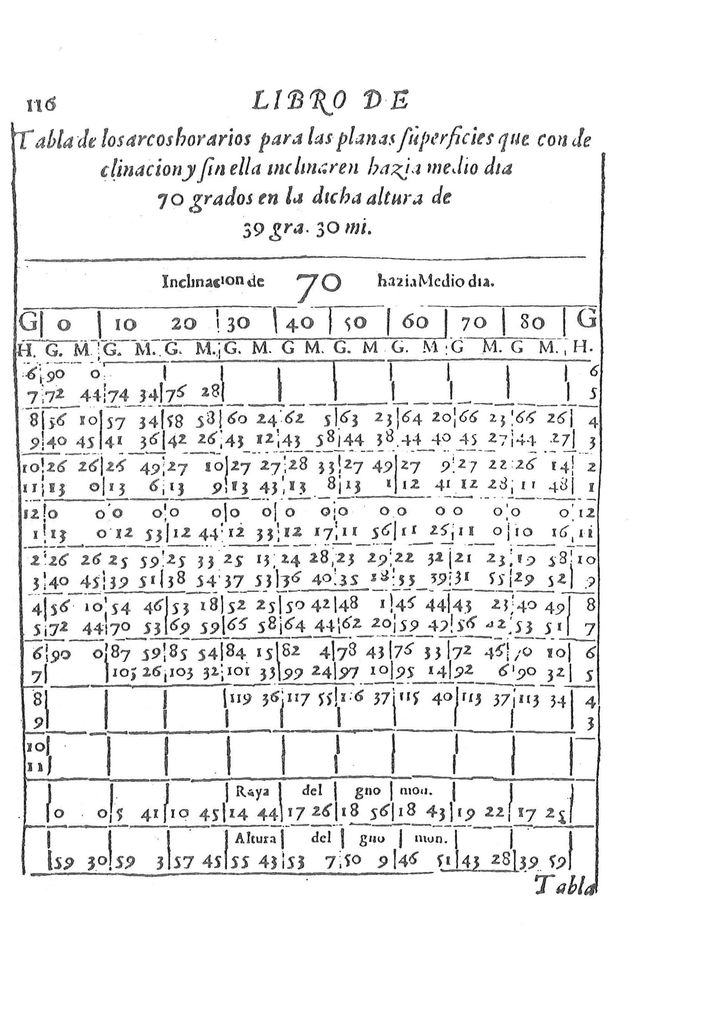 116 LIBRO DE
Tabla de los arcos horarios para las planas superficies que con de
clinacion y sin ella inclinaren hazia medio dia
70 grados en la dicha altura de
39 gra. 30 mi.
Inclinacion de 70 hazia Medio dia.
G 0 10 20 30 40 50 60 70 80 G
H. G. M. G. M. G. M. G. M. G M. G. M G. M G M. G M. H.
6 90 0 6
7 72 44 74 34 76 28 5
8 56 10 57 34 58 58 60 24 62 5 63 23 64 20 66 23 66 26 4
9 40 45 41 36 42 26 43 12 43 58 44 38 44 40 45 27 44 27 3
10 26 26 26 49 27 10 27 27 28 33 27 49 27 9 27 22 26 14 2
11 13 0 13 6 13 9 13 43 13 8 13 1 12 41 12 28 11 48 1
12 0 0 0 0 0 0 0 0 0 0 0 0 0 0 0 0 0 0 12
1 13 0 12 53 12 44 12 33 12 17 11 56 11 26 11 0 10 16 11
2 26 26 25 59 25 33 25 13 24 28 23 29 22 32 21 23 19 58 10
3 40 45 39 51 38 54 37 53 36 40 35 18 33 39 31 55 29 52 9
4 56 10 54 46 53 18 52 25 50 42 48 1 46 44 43 23 40 49 8
5 72 44 70 53 69 59 66 58 64 44 62 20 59 49 56 53 51 7
6 90 0 87 59 85 54 84 15 82 4 78 43 76 33 72 46 70 20 6
7 105 26 103 32 101 33 99 24 97 10 95 14 92 6 90 32 5
8 119 36 117 55 116 37 115 40 113 37 113 34 4
9 3
10
11
Raya del gno mon.
0 0 5 41 10 45 14 44 17 26 18 56 18 43 19 22 17 25
Altura del gno mon.
59 30 59 3 57 45 55 43 53 7 50 9 46 51 43 28 39 59
Tabla